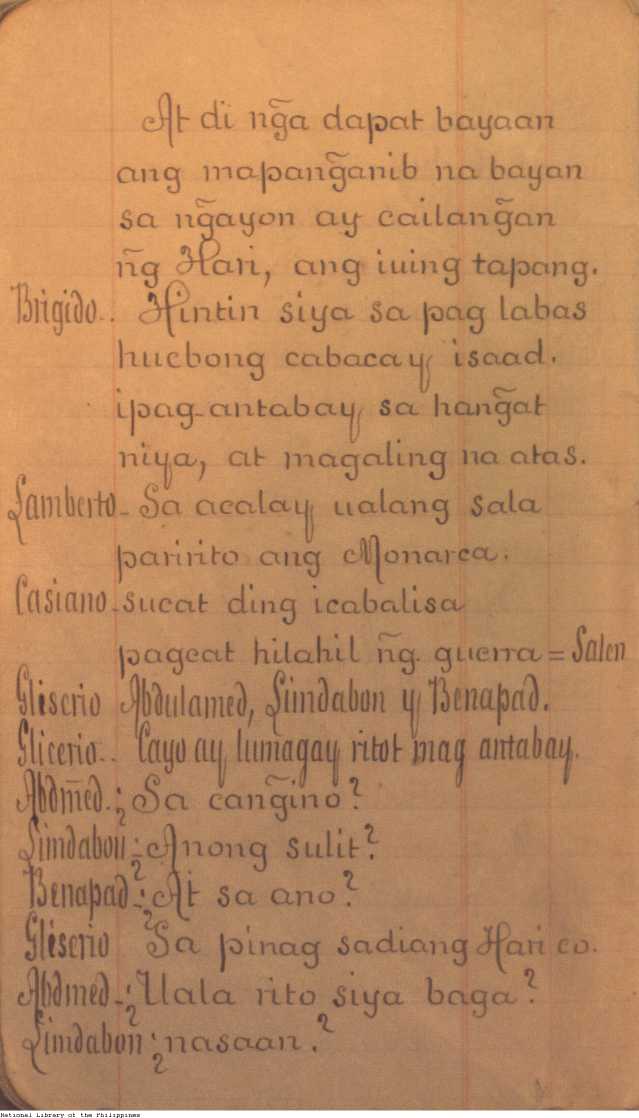 At di ng̃a dapat bayaan
ang mapang̃anib na bayan
sa ng̃ayon ay cailang̃an
ñg Hari, ang iuing tapang.
Brigido.. Hintin siya sa pag labas
hucbong cabacay isaad.
ipag-antabay sa hang̃at
niya, at magaling na atas.
Lamberto- Sa acalay ualang sala
paririto ang Monarca.
Casiano-sucat ding icabalisa
pagcat hilahil ñg guerra = Salen
Gliserio Abdulamed, Limdabon y Benapad.
Glicerio.. Cayo ay lumagay ritot mag antabay.
Abdmed.¿ Sa cang̃ino?
Limdabon ¿Anong sulit?
Benapad ¿At sa ano?
Gliserio Sa pinag sadiang Hari co.
Abdmed-¿Uala rito siya baga?
Limdabon ¿nasaan?
National Library of the Philippines